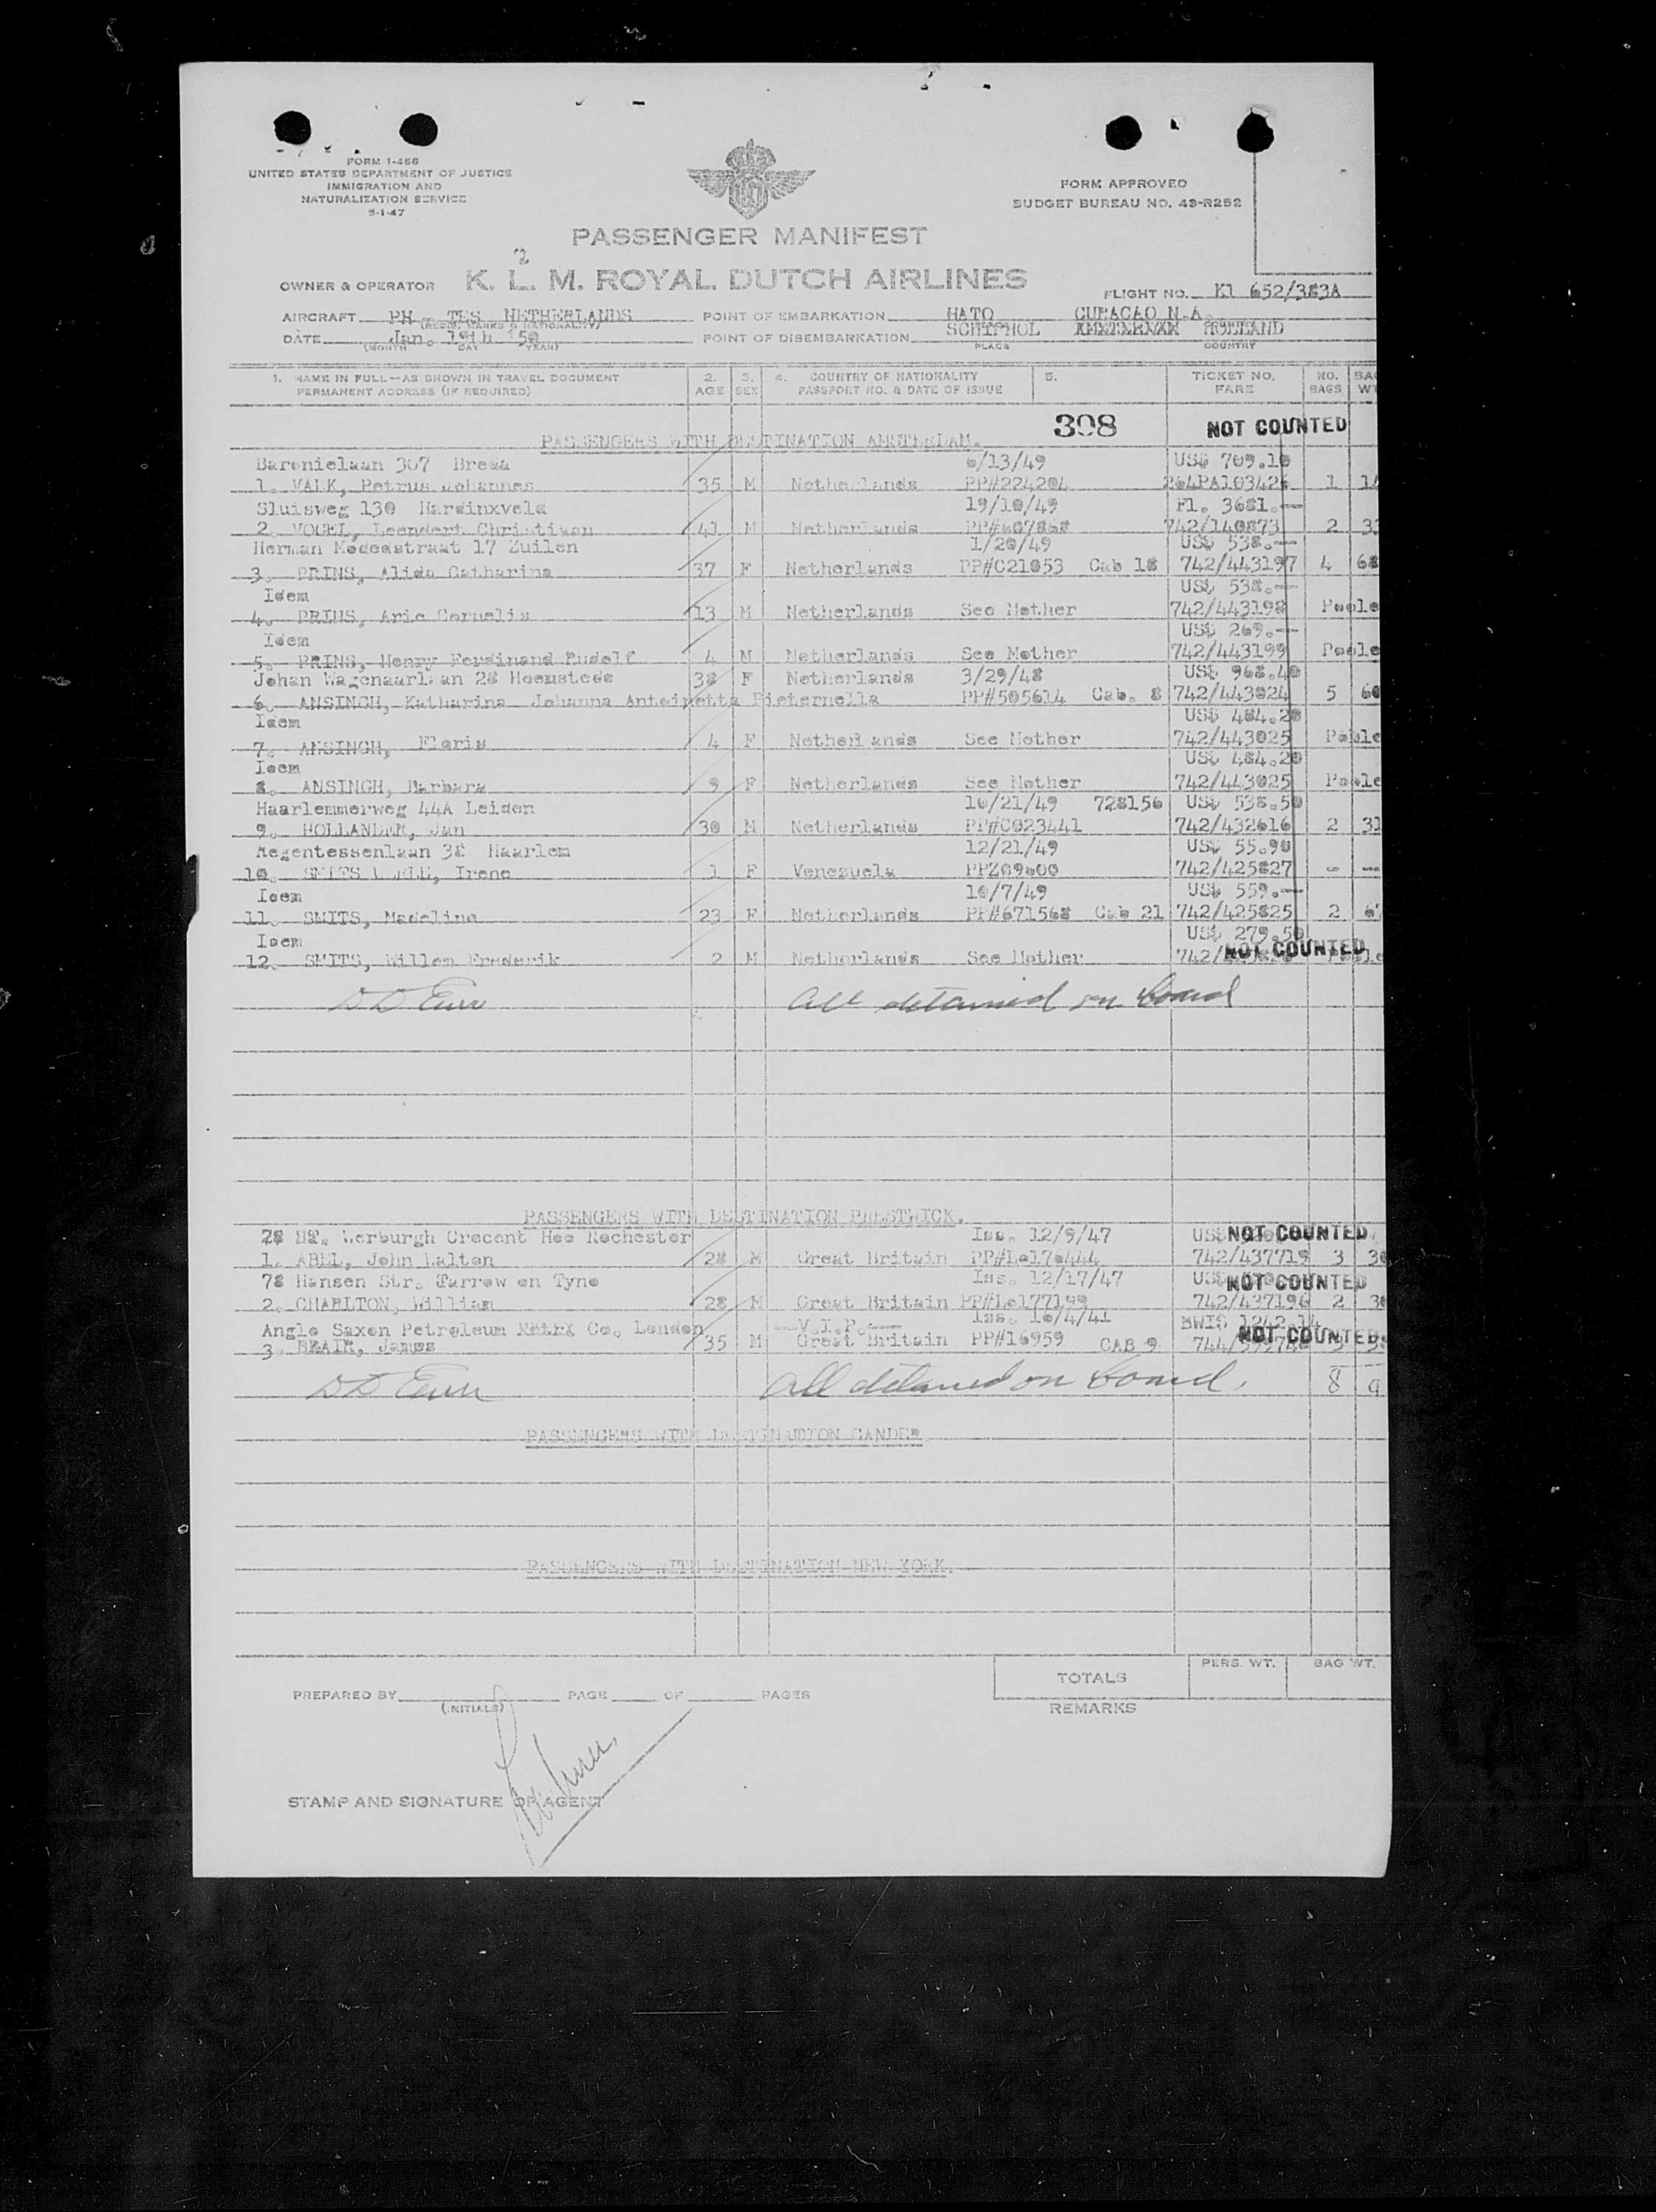 FORM I-466
UNITED STATES DEPARTMENT OF JUSTICE
IMMIGRATION AND
NATURALIZATION SERVICE
5-1-47
FORM APPROVED
BUDGET BUREAU NO. 43-R252
PASSENGER MANIFEST
2
OWNER & OPERATOR K. L. M. ROYAL DUTCH AIRLINES
FLIGHT NO. Kl 652/383A
AIRCRAFT PH - TES NETHERLANDS POINT OF EMBARKATION HATO CURACAO N.A.
(REGIS. MARKS & NATIONALITY)
DATE Jan. 19th '50 POINT OF DISEMBARKATION SCHIPHOL HOLLAND
(MONTH DAY YEAR) PLACE COUNTRY
1. NAME IN FULL—AS SHOWN IN TRAVEL DOCUMENT 2. 3. 4. COUNTRY OF NATIONALITY 5. TICKET NO. NO. BAG
PERMANENT ADDRESS (IF REQUIRED) AGE SEX PASSPORT NO. & DATE OF ISSUE FARE BAGS WT
308 NOT COUNTED
PASSENGERS WITH DESTINATION AMSTERDAM.
Baronielaan 307 Breda 6/13/49 US$ 709.10
1. VALK, Petrus Johannes 35 M Netherlands PP#224204 264PA103426 1
Sluisweg 130 Hardinxveld 19/10/49 Fl. 3681.—
2. VOGEL, Leendert Christiaan 41 M Netherlands PP#607868 742/140873 2
Herman Modedstraat 17 Zuilen 1/20/49 US$ 538.—
3. PRINS, Alida Catharina 37 F Netherlands PP#C21053 Cab 18 742/443197 4 68
Idem US$ 538.—
4. PRINS, Arie Cornelis 13 M Netherlands See Mother 742/443198 Poole
Idem US$ 269.—
5. PRINS, Henry Ferdinand Rudolf 4 M Netherlands See Mother 742/443199 Poole
Johan Wagenaarlaan 28 Heemstede 38 F Netherlands 3/29/48 US$ 968.40
6. ANSINGH, Katharina Johanna Antoinetta Pieternella PP#505614 Cab. 8 742/443024 5 60
Idem US$ 484.20
7. ANSINGH, Floris 4 F Netherlands See Mother 742/443025 Poole
Idem US$ 484.20
8. ANSINGH, Barbara 9 F Netherlands See Mother 742/443025 Poole
Haarlemmerweg 44A Leiden 10/21/49 728156 US$ 538.50
9. HOLLANDER, Jan 30 M Netherlands PP#C023441 742/432616 2 31
Regentessenlaan 38 Haarlem 12/21/49 US$ 55.90
10. SMITS Irene 1 F Venezuela PPZ09600 742/425827 - --
Idem 10/7/49 US$ 559.—
11. SMITS, Madeline 23 F Netherlands PP#671568 Cab 21 742/425825 2 67
Idem US$ 279.50
12. SMITS, Willem Frederik 2 M Netherlands See Mother NOT COUNTED
All detained on board
PASSENGERS WITH DESTINATION PRESTWICK.
28 ST. Werburgh Crecent Hoo Rochester Iss. 12/9/47 NOT COUNTED
1. ABEL, John Lalton 28 M Great Britain PP#Lo170444 742/437719 3 30
78 Hansen Str. Jarrow on Tyne Iss. 12/17/47 NOT COUNTED
2. CHARLTON, William 28 M Great Britain PP#Lo177199 742/437196 2 30
Anglo Saxon Petroleum Co. London —V.I.P.— Iss. 10/4/41 BWI$ 1242.14
3. BLAIR, James 35 M Great Britain PP#16959 CAB 9 NOT COUNTED
All detained on board. 8
PASSENGERS WITH DESTINATION GANDER
PASSENGERS WITH DESTINATION NEW YORK.
TOTALS PERS. WT. BAG WT.
PREPARED BY PAGE OF PAGES
(INITIALS) REMARKS
STAMP AND SIGNATURE OF AGENT